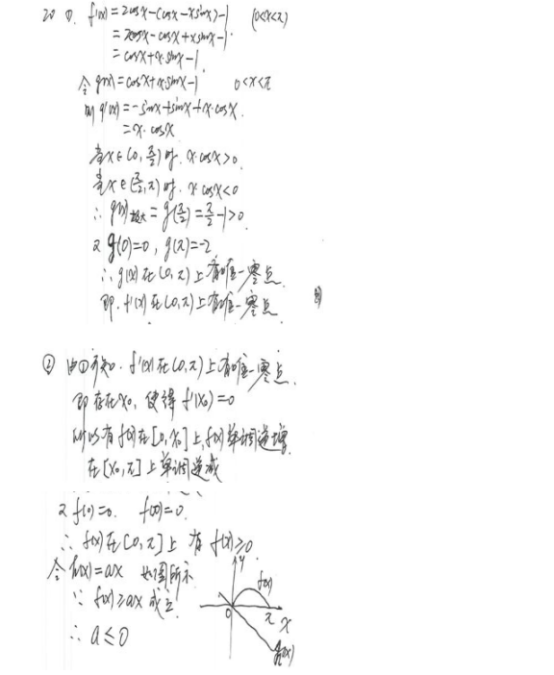 20 ①. f'(x)=2cosx-(cosx-xsinx)-1 (0<x<π)
=2cosx-cosx+xsinx-1
=cosx+x·sinx-1
令g(x)=cosx+x·sinx-1 0<x<π
则g'(x)=-sinx+sinx+x·cosx.
=x·cosx
当x∈(0,π/2)时. x·cosx>0.
当x∈(π/2,π)时. x cosx<0
∴ g(x)极大=g(π/2)=π/2-1>0
又g(0)=0, g(π)=-2
∴g(x)在(0,π)上有唯一零点.
即.f'(x)在(0,π)上有唯一零点.
② 由①可知.f'(x)在(0,π)上有唯一零点.
即存在x₀,使得f'(x₀)=0
所以有f(x)在[0,x₀]上,f(x)单调递增.
在[x₀,π]上单调递减
又f(0)=0. f(π)=0.
∴f(x)在[0,π]上有f(x)≥0
令h(x)=ax 如图所示
∵f(x)≥ax成立.
∴a≤0
y
f(x)
0
π
x